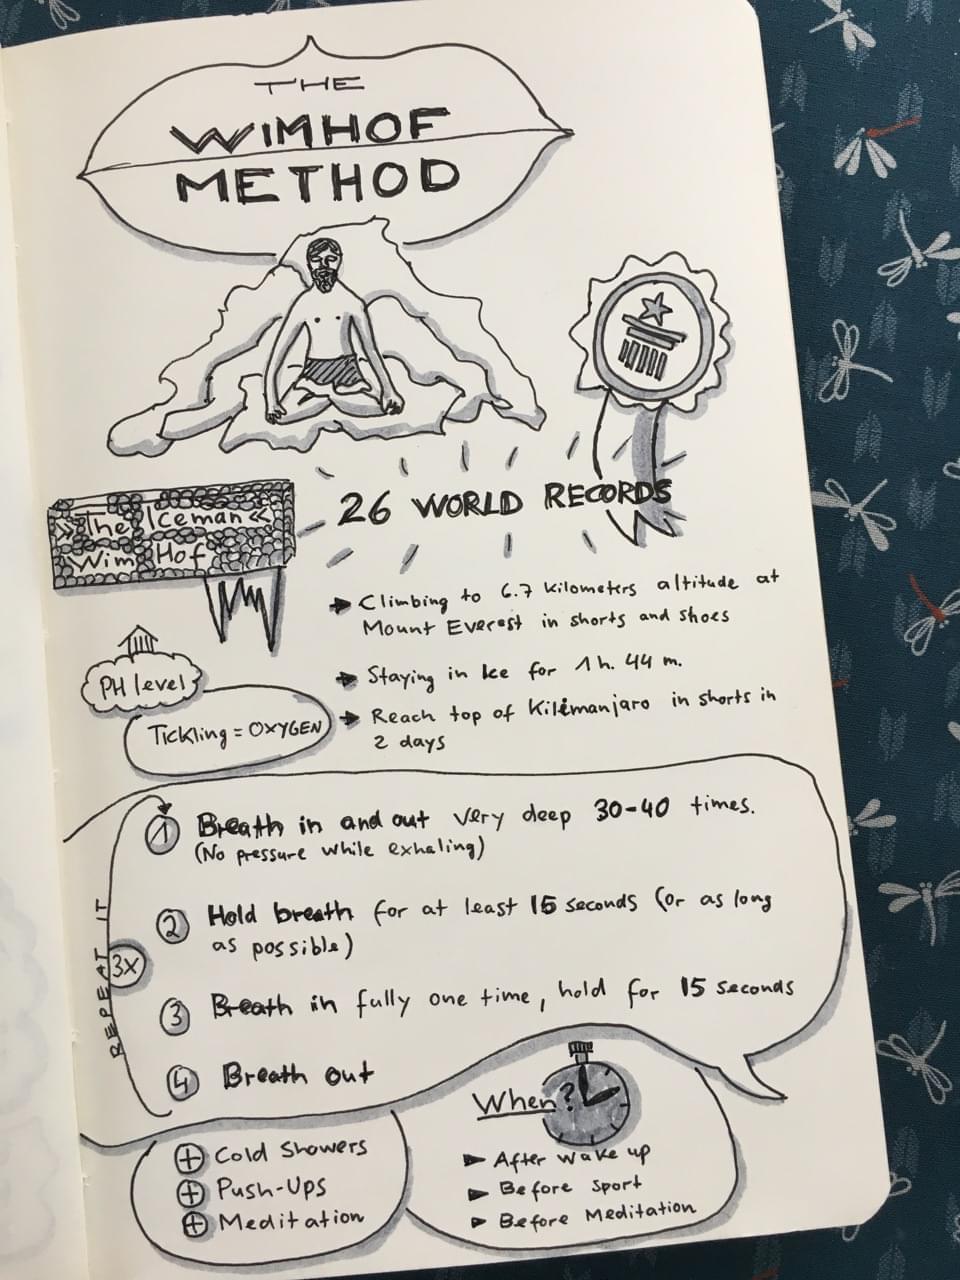 THE
WIMHOF
METHOD
26 WORLD RECORDS
» The Iceman «
Wim Hof
Climbing to 6.7 kilometers altitude at
Mount Everest in shorts and shoes
Staying in Ice for 1h. 44 m.
Reach top of Kilimanjaro in shorts in
2 days
PH level
Tickling = OXYGEN
1 Breath in and out very deep 30-40 times.
(No pressure while exhaling)
2 Hold breath for at least 15 seconds (or as long
as possible)
3 Breath in fully one time, hold for 15 seconds
4 Breath out
REPEAT IT
3x
+ Cold Showers
+ Push-Ups
+ Meditation
When?
After wake up
Before Sport
Before Meditation